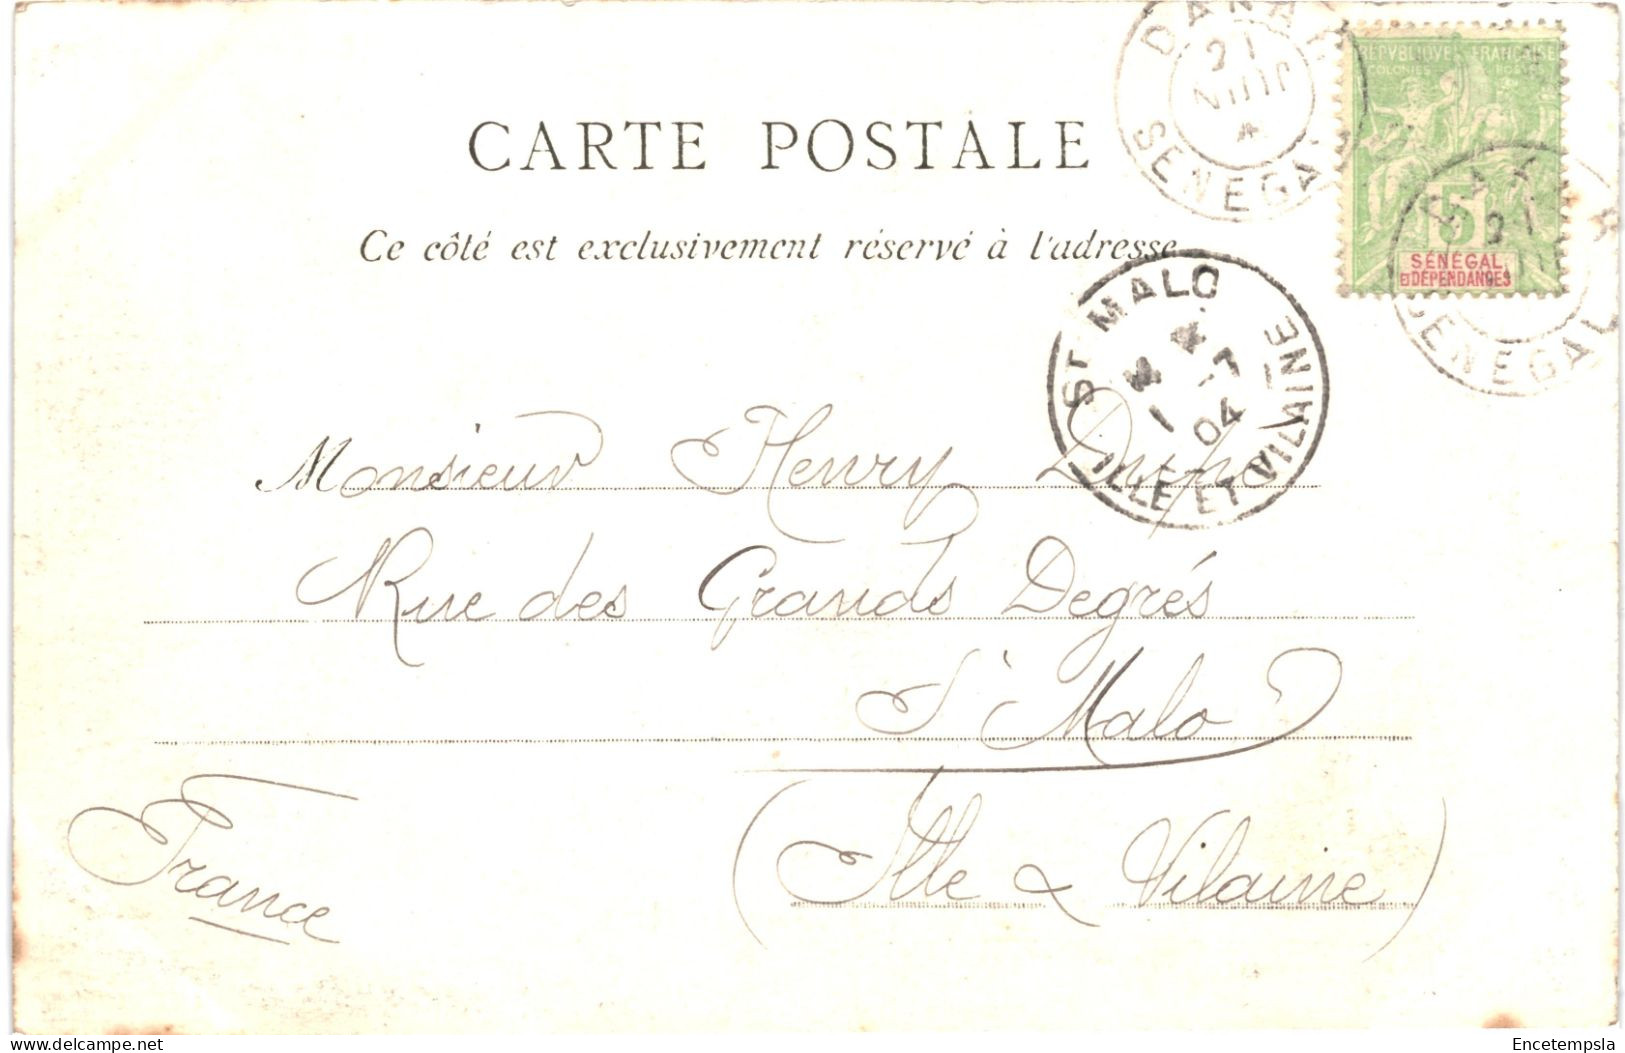 DAKAR
21
JUIN
SENEGAL
REPUBLIQUE FRANÇAISE
COLONIES POSTES
5
SÉNÉGAL
ET DÉPENDANCES
DAKAR
21
SENEGAL
CARTE POSTALE
Ce côté est exclusivement réservé à l'adresse
ST MALO
1 -7
04
ILLE ET VILAINE
Monsieur Henry
Rue des Grands Degrés
St Malo
(Ille & Vilaine)
France
Encetempsla